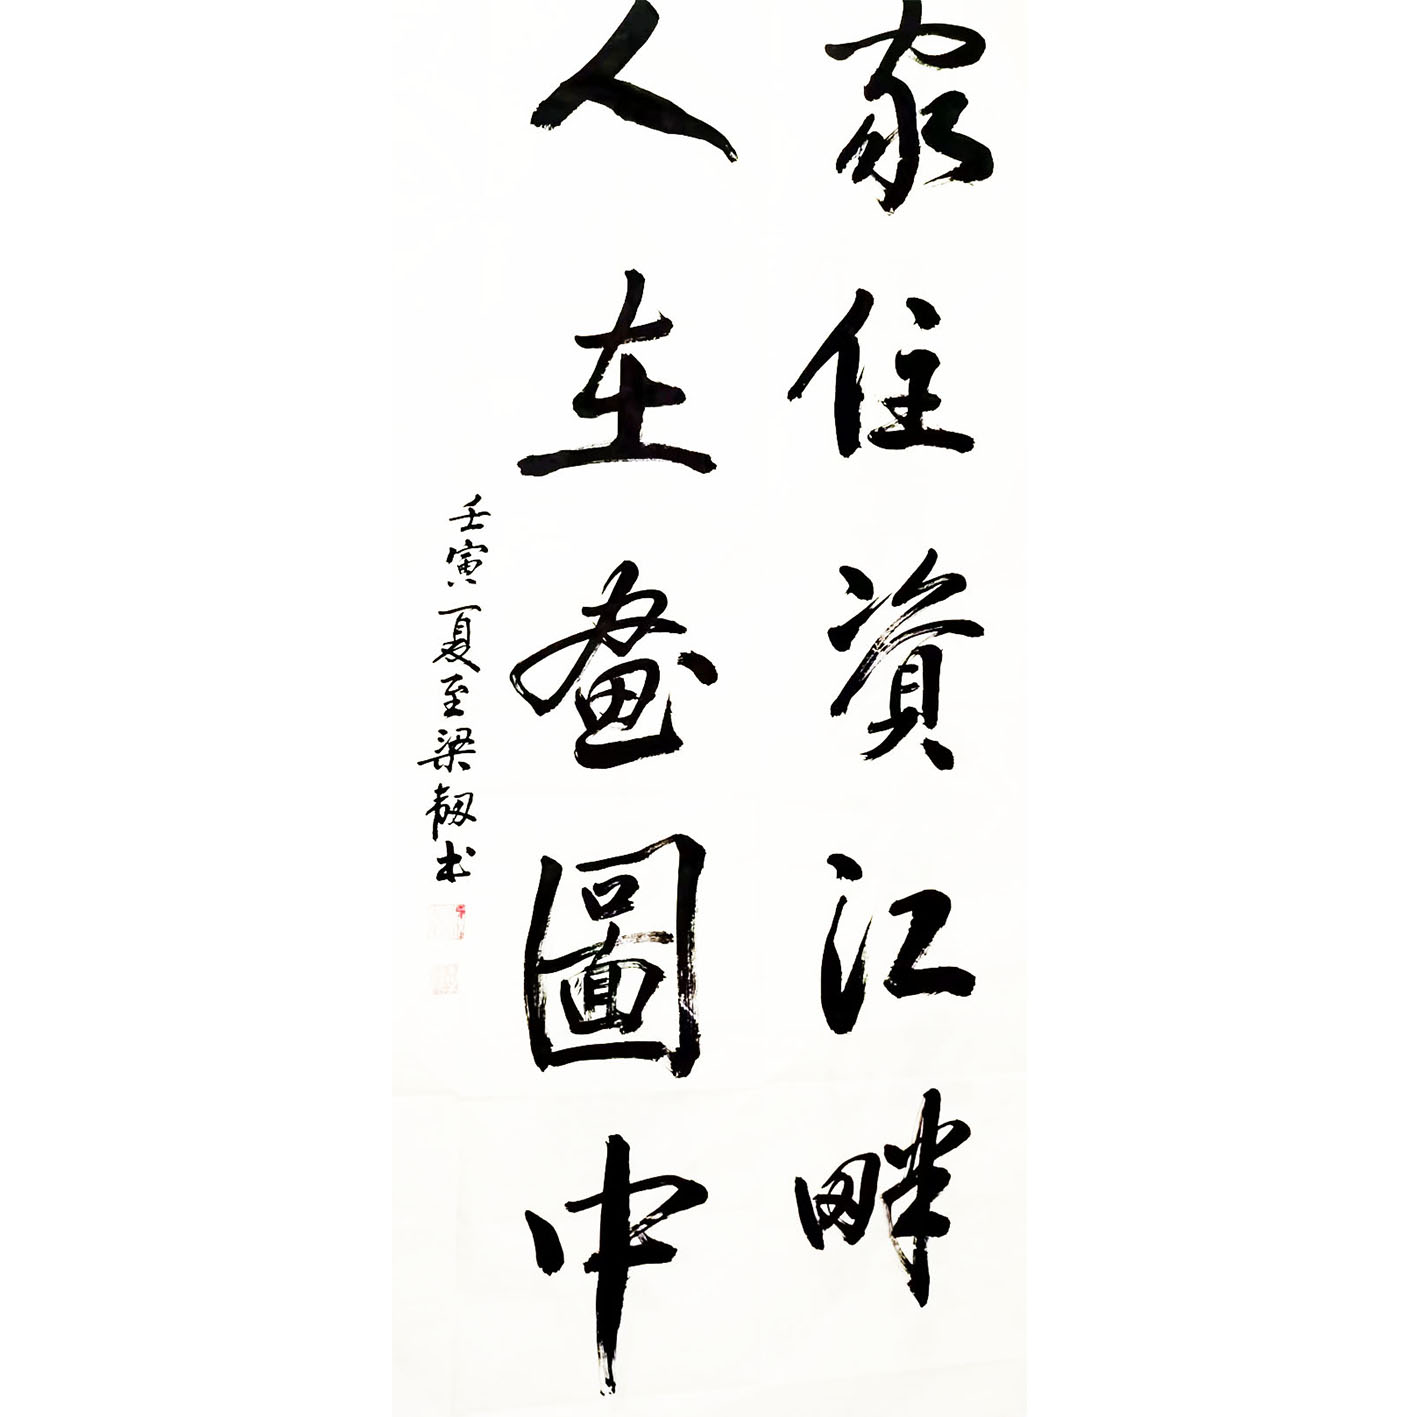 家住資江畔
人在畫圖中
壬寅夏至梁韌书